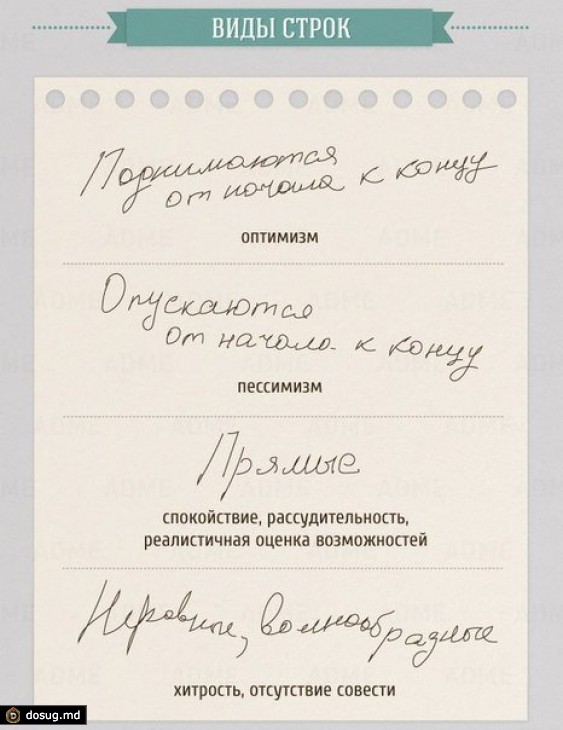 ВИДЫ СТРОК
Поднимаются
от начала к концу
оптимизм
Опускаются
от начала к концу
пессимизм
Прямые
спокойствие, рассудительность,
реалистичная оценка возможностей
Неровные, волнообразные
хитрость, отсутствие совести
dosug.md